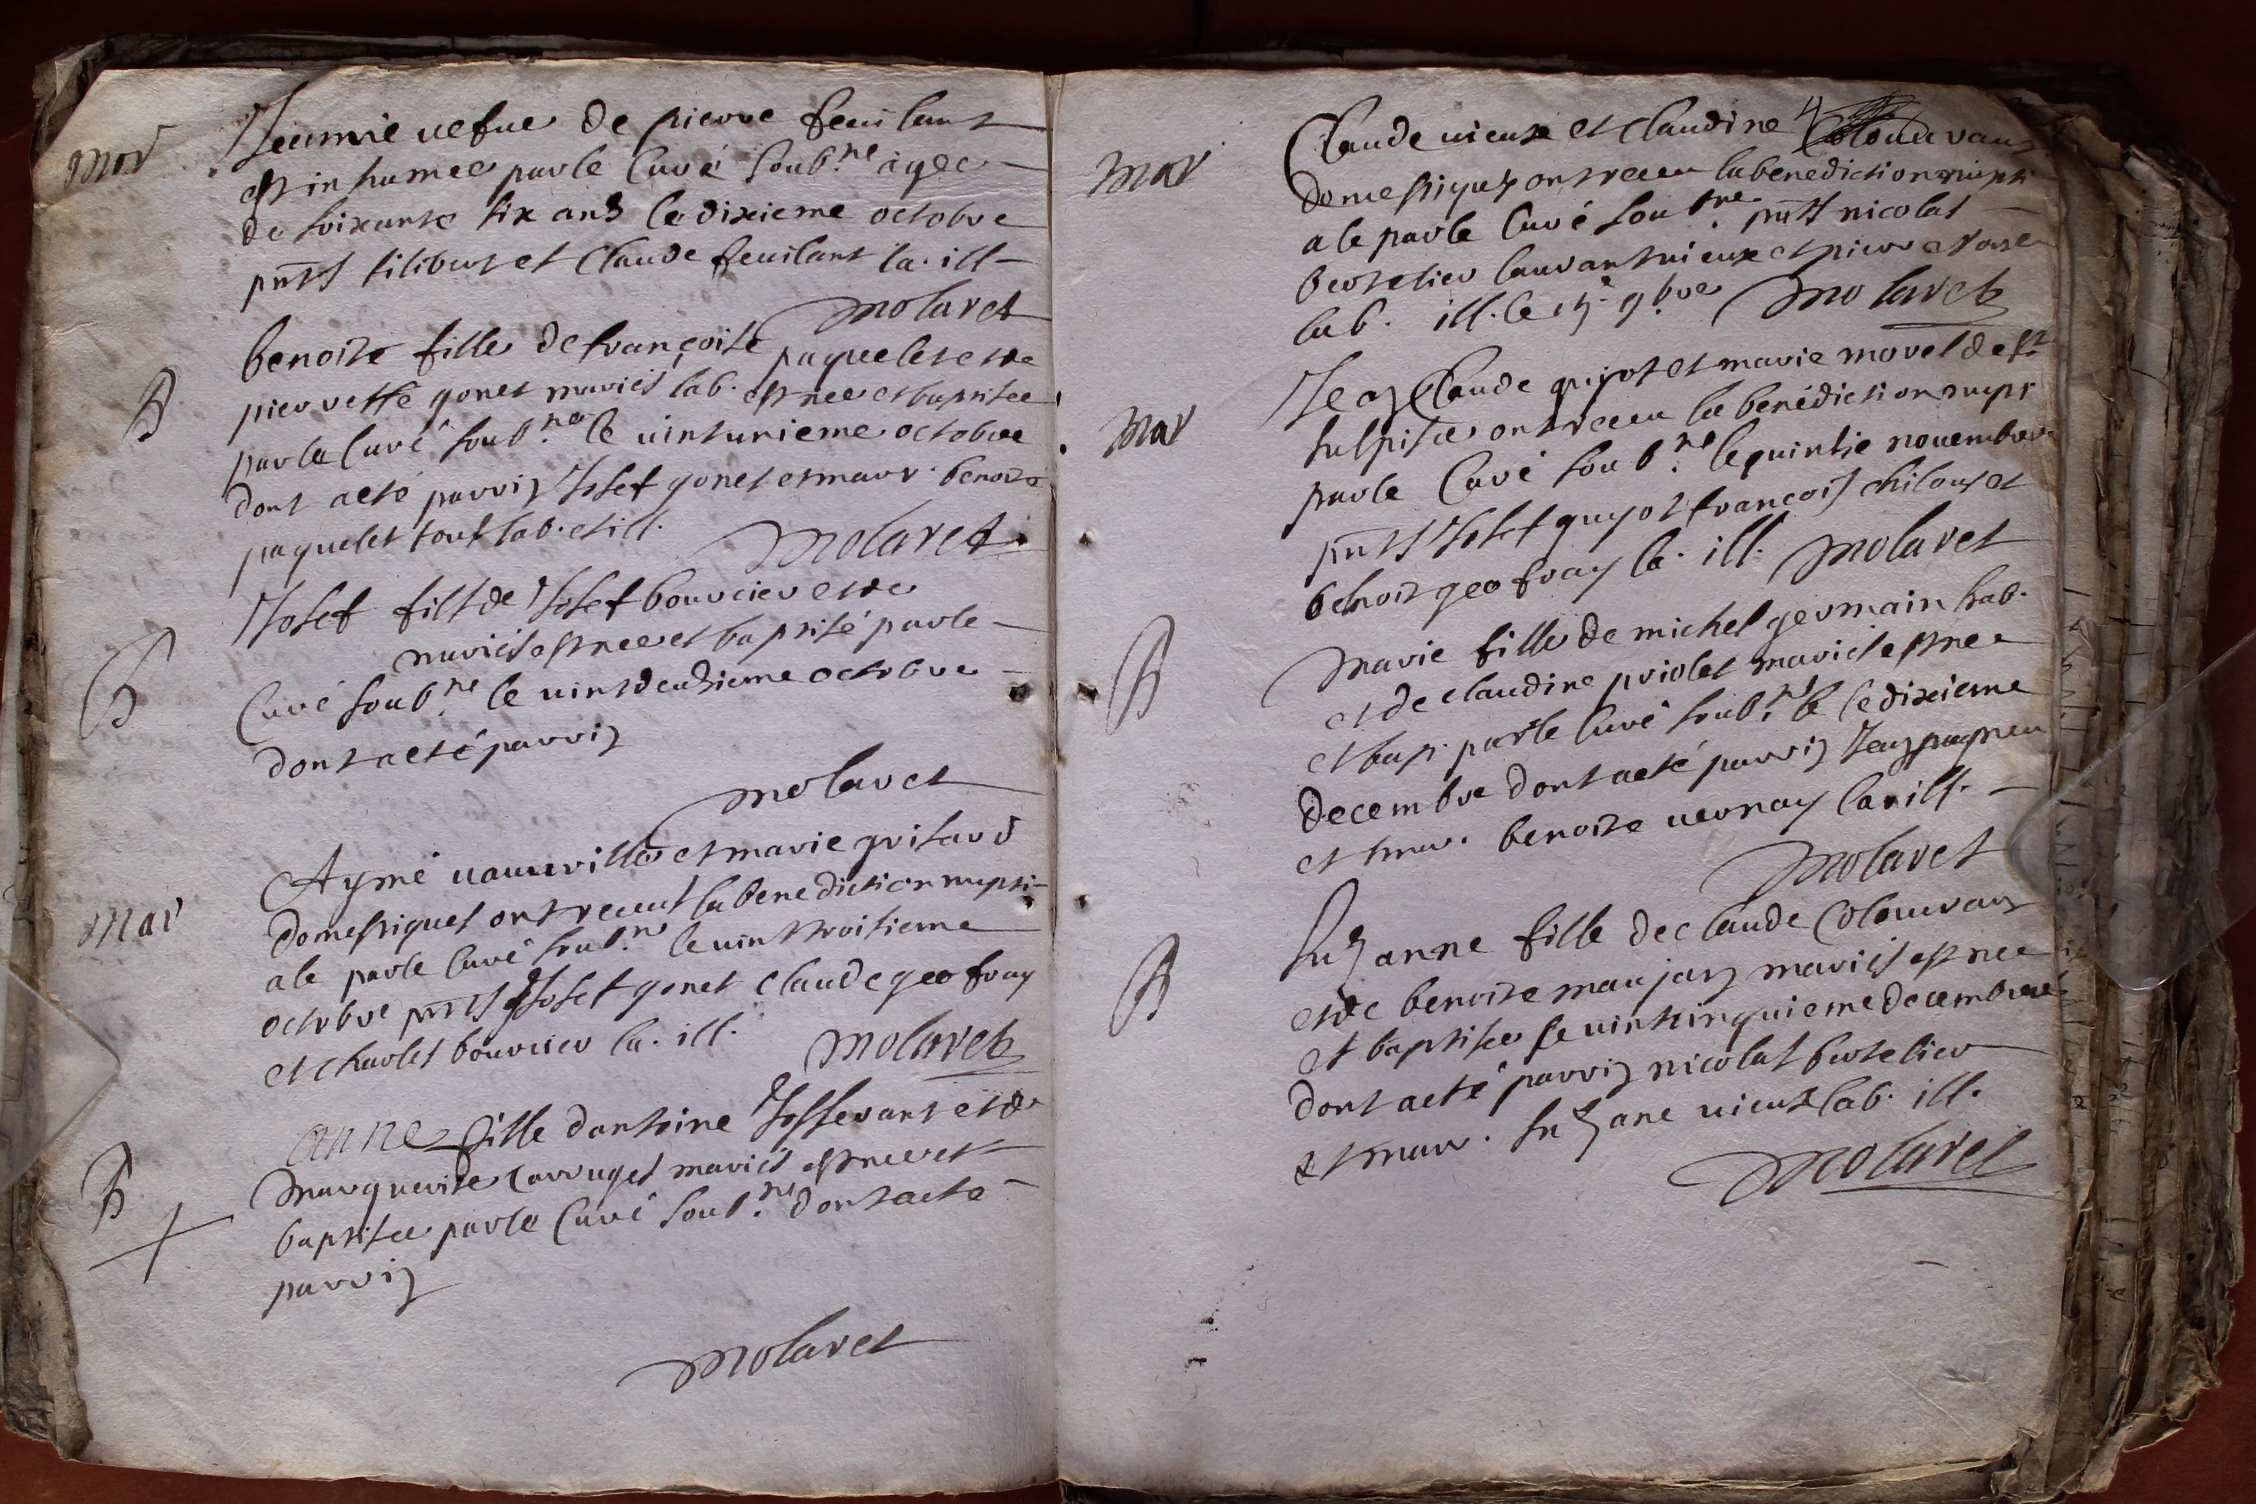 mor
Jeanne vefue de pierre feuilant
est inhumee par le Curé soub.ne agee
de soixante six ans le dixieme octobre
pnts filibert et Claude feuilant la. ill
molaret
B
benoite fille de françois paquelet et de
pierrette gonet mariés lab. est nee et baptisee
par le Curé soub.ne le vint unieme octobre
dont acte parrin Josef gonet et marr. benoite
paquelet tous lab. et ill.
molaret
B
Josef fils de Josef bourcier et de
mariés est nee et baptisé par le
Curé soub.ne le vint deusieme octobre
dont acte parrin
molaret
mar
Aymé et marie grisard
domestiques ont receus la benediction nupti
ale par le Curé soub.ne le vint troisieme
octobre pnts Josef gonet Claude geofray
et charles bourcier la. ill.
molaret
B
anne fille dantoine Josserant et de
marguerite Carruges mariés est nee et
baptisee par le Curé soub.ne dont acte
parrin
molaret
4
mar
Claude vieux et Claudine
domestiques ont receu la benediction nupti
ale par le Curé soub.ne pnts nicolas
bertelier laurant vieux et pierre
lab. ill. le 9bre molaret
mar
Jean Claude guyot et marie morel de st
sulpice ont receu la benediction nupt
par le Curé soub.ne le quinsie novembre
pnts Josef guyot françois et
benoit geofray la. ill. molaret
B
marie fille de michel germain hab.
et de claudine priolet mariés est nee
et bap. par le Curé soub.ne le dixieme
decembre dont acte parrin Jean
et mar. benoite vernay la. ill.
molaret
B
Suzanne fille de claude Colouvran
et de benoite maujan mariés est nee
et baptisee le vint cinquieme decembre
dont acte parrin nicolas bertelier
et marr. Suzane vieux lab. ill.
molaret